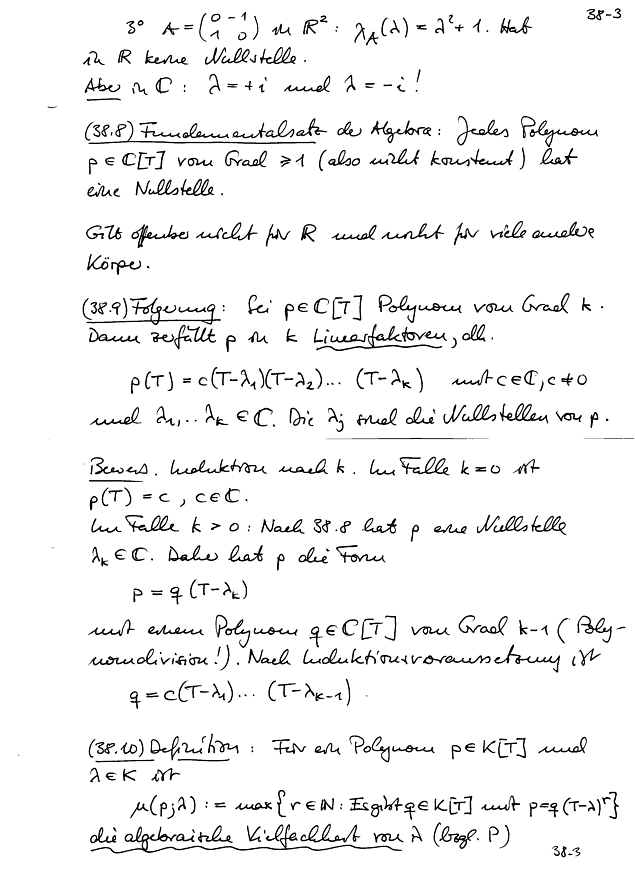 38-3
3° A = (0 -1 / 1 0) in ℝ² : χ_A(λ) = λ² + 1. Hat
in ℝ keine Nullstelle.
Aber in ℂ : λ = +i und λ = -i !
(38.8) Fundamentalsatz der Algebra: Jedes Polynom
p ∈ ℂ[T] vom Grad ≥ 1 (also nicht konstant) hat
eine Nullstelle.
Gilt offenbar nicht für ℝ und nicht für viele andere
Körper.
(38.9) Folgerung: Sei p ∈ ℂ[T] Polynom vom Grad k.
Dann zerfällt p in k Linearfaktoren, dh.
p(T) = c(T-λ₁)(T-λ₂)... (T-λ_k) mit c ∈ ℂ, c ≠ 0
und λ₁,.. λ_k ∈ ℂ. Die λ_j sind die Nullstellen von p.
Beweis. Induktion nach k. Im Falle k = 0 ist
p(T) = c , c ∈ ℂ.
Im Falle k > 0 : Nach 38.8 hat p eine Nullstelle
λ_k ∈ ℂ. Daher hat p die Form
p = q (T-λ_k)
mit einem Polynom q ∈ ℂ[T] vom Grad k-1 ( Poly-
nomdivision!). Nach Induktionsvoraussetzung ist
q = c(T-λ₁)... (T-λ_{k-1}) .
(38.10) Definition : Für ein Polynom p ∈ K[T] und
λ ∈ K ist
μ(p;λ) := max{r ∈ ℕ : Es gibt q ∈ K[T] mit p = q(T-λ)^r}
die algebraische Vielfachheit von λ (bzgl. P)
38-3